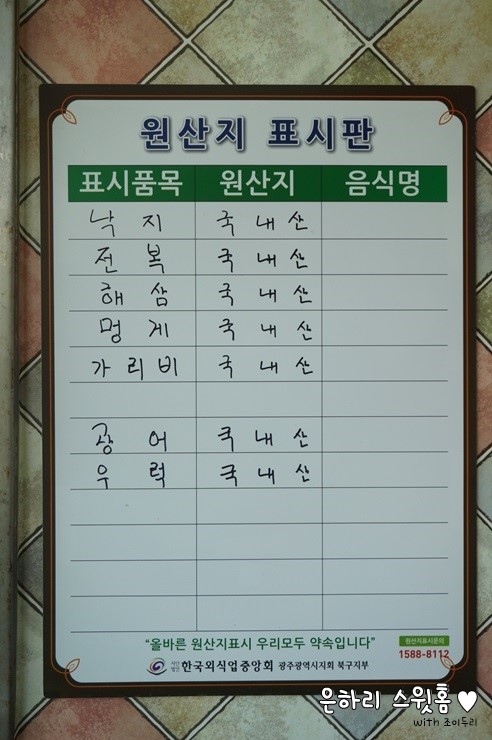 원산지 표시판
표시품목 원산지 음식명
낙지 국내산
전복 국내산
해삼 국내산
멍게 국내산
가리비 국내산
광어 국내산
우럭 국내산
“올바른 원산지표시 우리모두 약속입니다”
원산지표시문의
1588-8112
사단법인 한국외식업중앙회 광주광역시지회 북구지부
은하리 스윗홈♥
with 조이두리